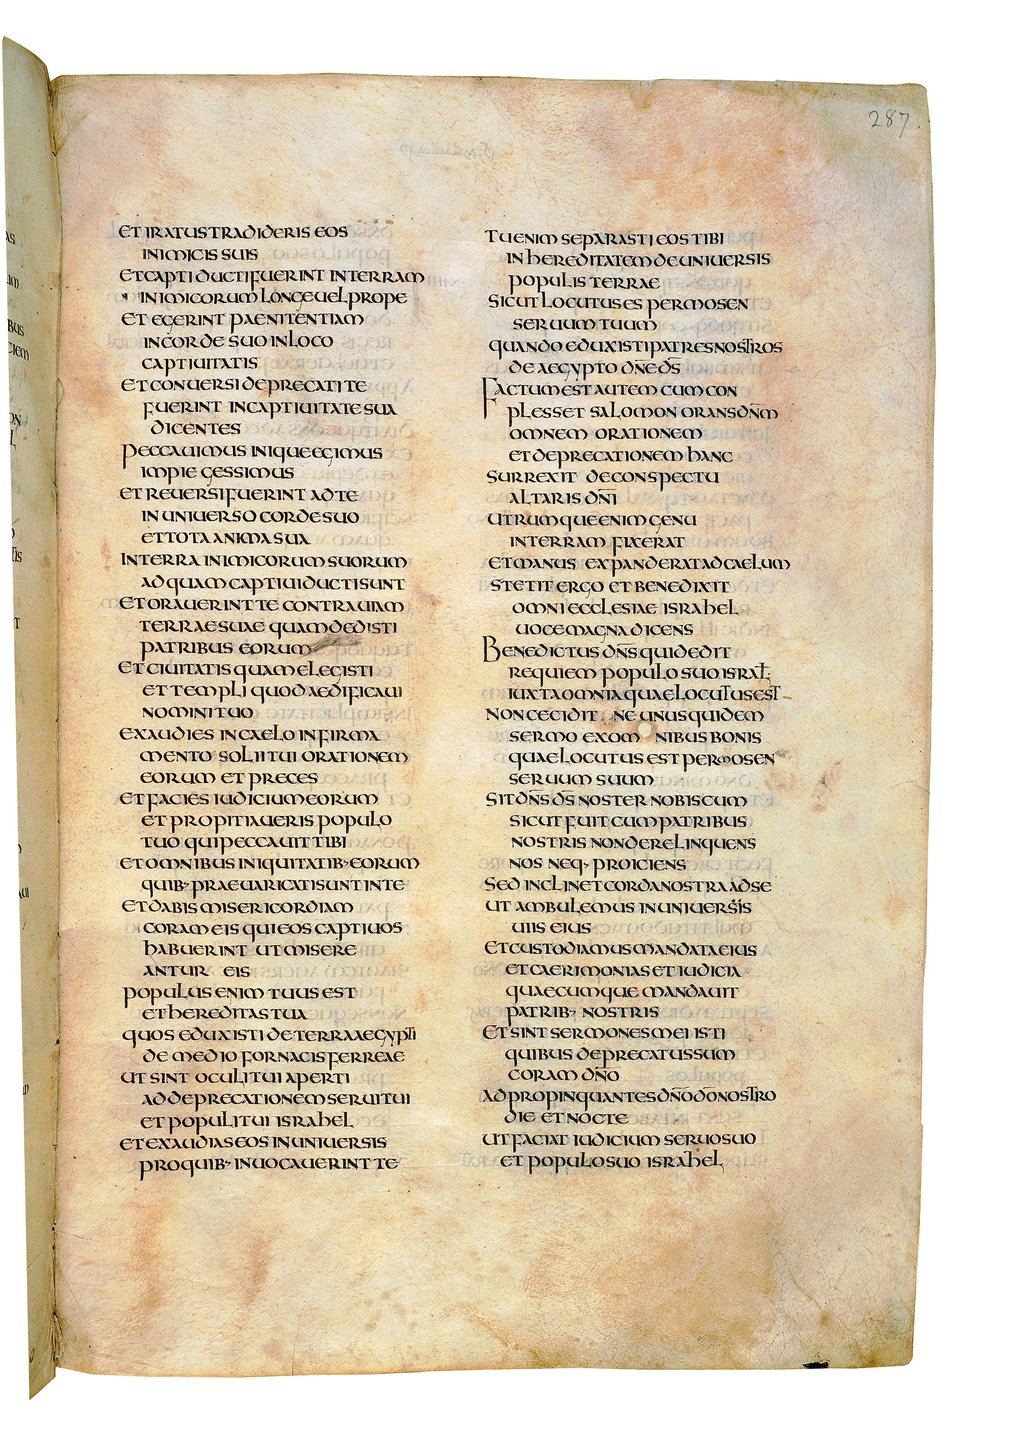 287
ET IRATUS TRADIDERIS EOS
INIMICIS SUIS
ET CAPTI DUCTI FUERINT IN TERRAM
INIMICORUM LONGE UEL PROPE
ET EGERINT PAENITENTIAM
IN CORDE SUO IN LOCO
CAPTIUITATIS
ET CONUERSI DEPRECATI TE
FUERINT IN CAPTIUITATE SUA
DICENTES
PECCAUIMUS INIQUE EGIMUS
IMPIE GESSIMUS
ET REUERSI FUERINT AD TE
IN UNIUERSO CORDE SUO
ET TOTA ANIMA SUA
IN TERRA INIMICORUM SUORUM
AD QUAM CAPTIUI DUCTI SUNT
ET ORAUERINT TE CONTRA UIAM
TERRAE SUAE QUAM DEDISTI
PATRIBUS EORUM
ET CIUITATIS QUAM ELEGISTI
ET TEMPLI QUOD AEDIFICAUI
NOMINI TUO
EXAUDIES IN CAELO IN FIRMA
MENTO SOLII TUI ORATIONEM
EORUM ET PRECES
ET FACIES IUDICIUM EORUM
ET PROPITIAUERIS POPULO
TUO QUI PECCAUIT TIBI
ET OMNIBUS INIQUITATIB· EORUM
QUIB· PRAEUARICATI SUNT IN TE
ET DABIS MISERICORDIAM
CORAM EIS QUI EOS CAPTIUOS
HABUERINT UT MISERE
ANTUR EIS
POPULUS ENIM TUUS EST
ET HEREDITAS TUA
QUOS EDUXISTI DE TERRA AEGYPTI
DE MEDIO FORNACIS FERREAE
UT SINT OCULI TUI APERTI
AD DEPRECATIONEM SERUI TUI
ET POPULI TUI ISRAHEL
ET EXAUDIAS EOS IN UNIUERSIS
PRO QUIB· INUOCAUERINT TE
TU ENIM SEPARASTI EOS TIBI
IN HEREDITATEM DE UNIUERSIS
POPULIS TERRAE
SICUT LOCUTUS ES PER MOSEN
SERUUM TUUM
QUANDO EDUXISTI PATRES NOSTROS
DE AEGYPTO DN̄E DS̄
FACTUM EST AUTEM CUM CON
PLESSET SALOMON ORANS DN̄M
OMNEM ORATIONEM
ET DEPRECATIONEM HANC
SURREXIT DE CONSPECTU
ALTARIS DN̄I
UTRUMQUE ENIM GENU
IN TERRAM FIXERAT
ET MANUS EXPANDERAT AD CAELUM
STETIT ERGO ET BENEDIXIT
OMNI ECCLESIAE ISRAHEL
UOCE MAGNA DICENS
BENEDICTUS DN̄S QUI DEDIT
REQUIEM POPULO SUO ISRAL̄
IUXTA OMNIA QUAE LOCUTUS EST
NON CECIDIT NE UNUS QUIDEM
SERMO EX OMNIBUS BONIS
QUAE LOCUTUS EST PER MOSEN
SERUUM SUUM
SIT DN̄S DS̄ NOSTER NOBISCUM
SICUT FUIT CUM PATRIBUS
NOSTRIS NON DERELINQUENS
NOS NEQ· PROICIENS
SED INCLINET CORDA NOSTRA AD SE
UT AMBULEMUS IN UNIUERSIS
UIIS EIUS
ET CUSTODIAMUS MANDATA EIUS
ET CAERIMONIAS ET IUDICIA
QUAECUMQUE MANDAUIT
PATRIB· NOSTRIS
ET SINT SERMONES MEI ISTI
QUIBUS DEPRECATUS SUM
CORAM DN̄O
ADPROPINQUANTES DN̄O DŌ NOSTRO
DIE ET NOCTE
UT FACIAT IUDICIUM SERUO SUO
ET POPULO SUO ISRAHEL